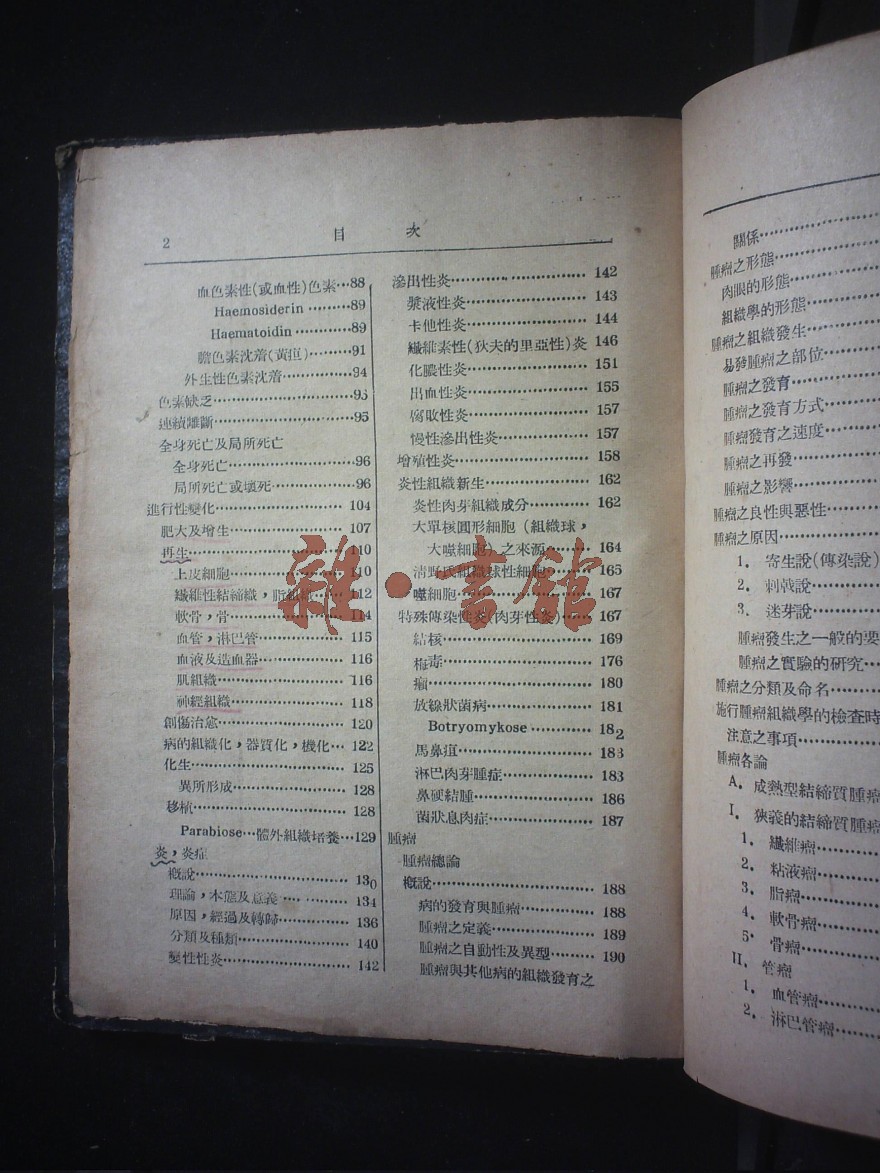 2
目 次
血色素性(或血性)色素…88
Haemosiderin………89
Haematoidin………89
膽色素沈着(黃疸)………91
外生性色素沈着……………94
色素缺乏……………………95
連續離斷……………………95
全身死亡及局所死亡
全身死亡…………………96
局所死亡或壞死……………96
進行性變化……………………104
肥大及增生…………………107
再生…………………………110
上皮細胞…………………110
纖維性結締織，脂組織……112
軟骨，骨…………………114
血管，淋巴管……………115
血液及造血器……………116
肌組織……………………116
神經組織…………………118
創傷治愈……………………120
病的組織化，器質化，機化…122
化生…………………………125
異所形成…………………128
移植…………………………128
Parabiose…體外組織培養…129
炎，炎症
概說…………………………130
理論，本態及意義…………134
原因，經過及轉歸…………136
分類及種類…………………140
變性性炎……………………142
滲出性炎……………………142
漿液性炎…………………143
卡他性炎…………………144
纖維素性(狄夫的里亞性)炎 146
化膿性炎…………………151
出血性炎…………………155
腐敗性炎…………………157
慢性滲出性炎……………157
增殖性炎……………………158
炎性組織新生………………162
炎性肉芽組織成分…………162
大單核圓形細胞（組織球，
大噬細胞）之來源………164
165
噬細胞……………………167
特殊傳染性炎(肉芽性炎)……167
結核………………………169
梅毒………………………176
癩…………………………180
放線狀菌病………………181
Botryomykose……………182
馬鼻疽……………………183
淋巴肉芽腫症……………183
鼻硬結腫…………………186
菌狀息肉症………………187
腫瘤
腫瘤總論
概說…………………………188
病的發育與腫瘤……………188
腫瘤之定義…………………189
腫瘤之自動性及異型………190
腫瘤與其他病的組織發育之
關係
腫瘤之形態
肉眼的形態
組織學的形態
腫瘤之組織發生
易發腫瘤之部位
腫瘤之發育
腫瘤之發育方式
腫瘤發育之速度
腫瘤之再發
腫瘤之影響
腫瘤之良性與惡性
腫瘤之原因
1. 寄生說(傳染說)
2. 刺戟說
3. 迷芽說
腫瘤發生之一般的要
腫瘤之實驗的研究
腫瘤之分類及命名
施行腫瘤組織學的檢查時
注意之事項
腫瘤各論
A. 成熟型結締質腫瘤
I. 狹義的結締質腫瘤
1. 纖維瘤
2. 粘液瘤
3. 脂瘤
4. 軟骨瘤
5. 骨瘤
II. 管瘤
1. 血管瘤
2. 淋巴管瘤
雜·書館